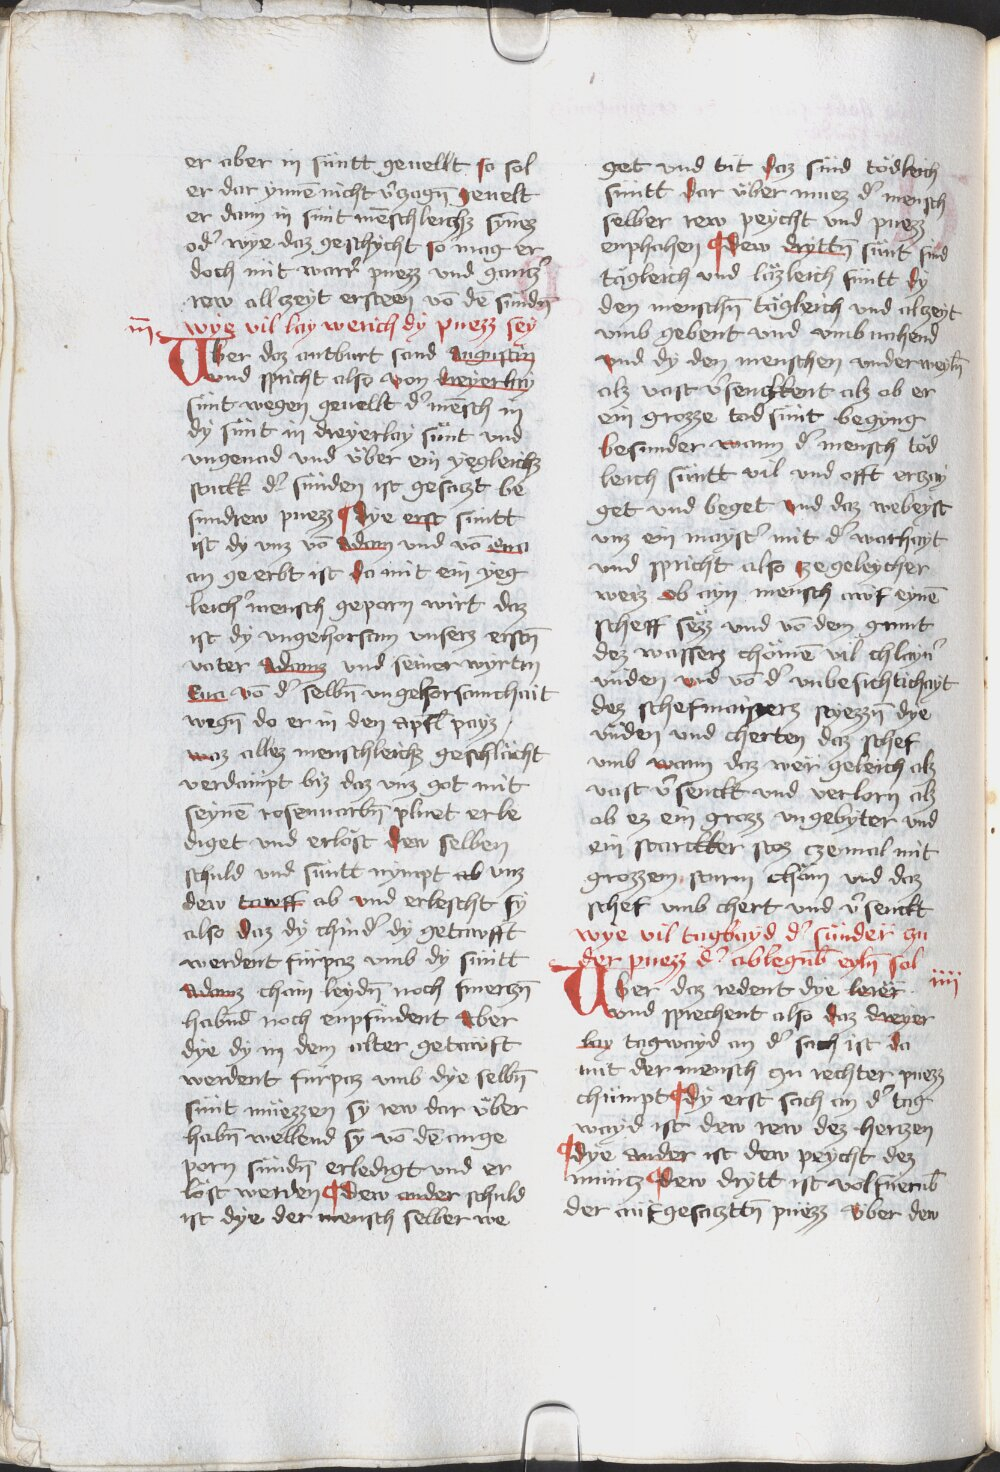 er aber in süntt geuellt so sol
er dar ynnē nicht v̄zagn̄ geuelt
er dann in sünt mēschleichz synez
od' wye daz geschycht so mag er
doch mit warr' puezz vnd gantz'
rew all czeyt ersteen vō de sündn̄
iii wye vil lay werich dy puezz sey
Vber daz antburt sand Augustin
vnd spricht also von dreyerlay
sünt wegen geuellt d' mēsch in
dy sünt in dreyerlay sünt vnd
vngenad vnd über ein yegleichz
stuckk d' sünden ist gesaczt be
sundrew puezz ¶ Dye erst süntt
ist dy vnz vō Adam vnd vō eua
an geerbt ist da mit ein yeg
leich' mensch geporn wirt daz
ist dy vngehorsam vnserz erstn̄
vater Adamz vnd seiner wyrtin
Eua vō d' selbn̄ vngehorsamchait
wegn̄ do er in den Apfl payz
waz allez menschleichz geschlächt
verdampt biz daz vnz got mit
seynē rosenuarbn̄ pluet erle
diget vnd erlöst dew selben
schuld vnd süntt nympt ab vnz
dew tawff ab vnd erlescht sy
also daz dy chind' dy getawfft
werdent fürpaz vmb dy süntt
Adamz chain leydn̄ noch smerczn̄
habnd noch enpfindent Aber
dye dy in dem alter getauft
werdent fürpaz vmb dye selbn̄
sünt müezzen sy rew dar über
habn̄ wellend sy vō dē ange
porn sündn̄ erledigt vnd er
löst werden ¶ Dew ander schuld
ist dye der mensch selber we
get vnd tüt daz sind tödleich
süntt dar über muez d' mensch
selber rew peycht vnd puezz
enphahen ¶ Dew dryttn̄ sünt sind
tägleich vnd läzleich süntt dy
den menschn̄ tägleich vnd alzeyt
vmb gebent vnd vmbuahend
vnd dy den menschen vnderweyln̄
alz vast v̄senckent alz ob er
ein grozze tod sünt begyng
besunder wann d' mensch töd
leich süntt vil vnd offt erzay
get vnd beget vnd daz webeyst
vnz ein mayst' mit d' warhayt
vnd spricht also zegeleycher
weiz ob ayn mensch auf eynē
scheff sezz vnd vō dem grunt
dez wasserz chömē vil chlayn'
vnden vnd vō d' vnbesichtichayt
dez schefmaisterz styezzn̄ dye
vnden vnd cherten daz schef
vmb wann daz wer geleich alz
vast v̄senckt vnd verlorn alz
ob ez ein grozz vngebyter vnd
ein starckker stoz czemal mit
grozzem sturm chäm vnd daz
schef vmb chert vnd v̄senckt
wye vil tagbayd d' sünder zu
der puezz d' ablegūb eyln̄ sol
iiii
Vber daz redent dye lerer
vnd sprechent also daz dreyer
lay tagwayd an d' sach ist da
mit der mensch zu rechter puezz
chümpt ¶ Dy erst sach an d' tag
wayd ist dew rew dez herczen
¶ Dye ander ist dew peycht dez
muntz ¶ Dew drytt ist volfuerūb
der aufgesacztn̄ puezz über dew